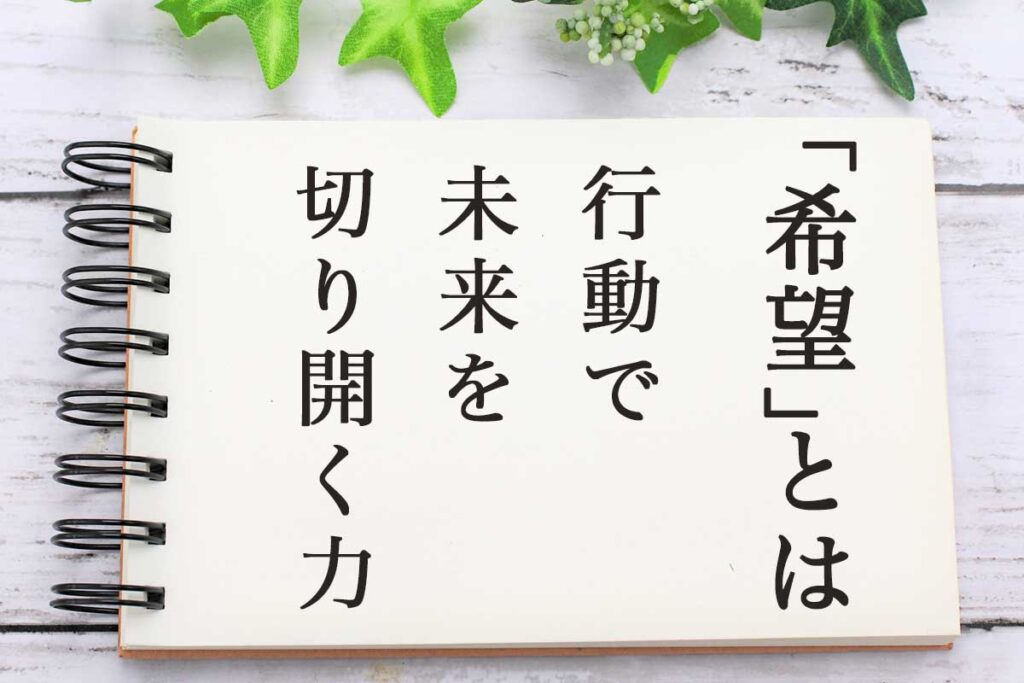 「希望」とは
行動で
未来を
切り開く力